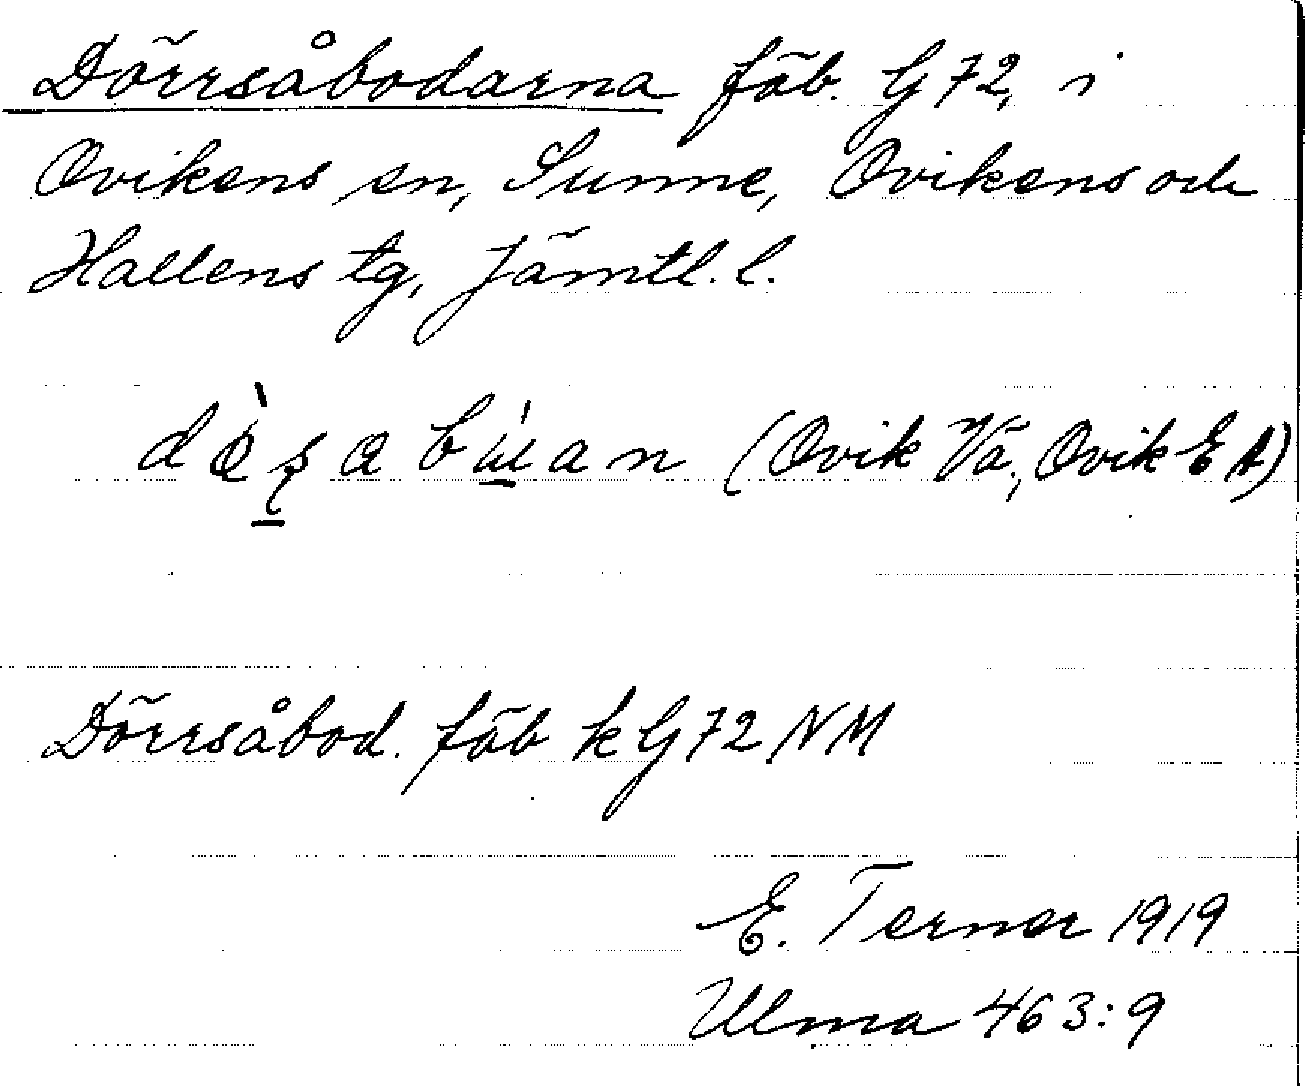 Dörrsåbodarna fäb. G 72, i
Ovikens sn, Sunne, Ovikens och
Hallens tg, Jämtl. l.
(Ovik Vä, Ovik E A)
Dörrsåbod. fäb k G 72 NM
E. Terner 1919
Ulma 463:9